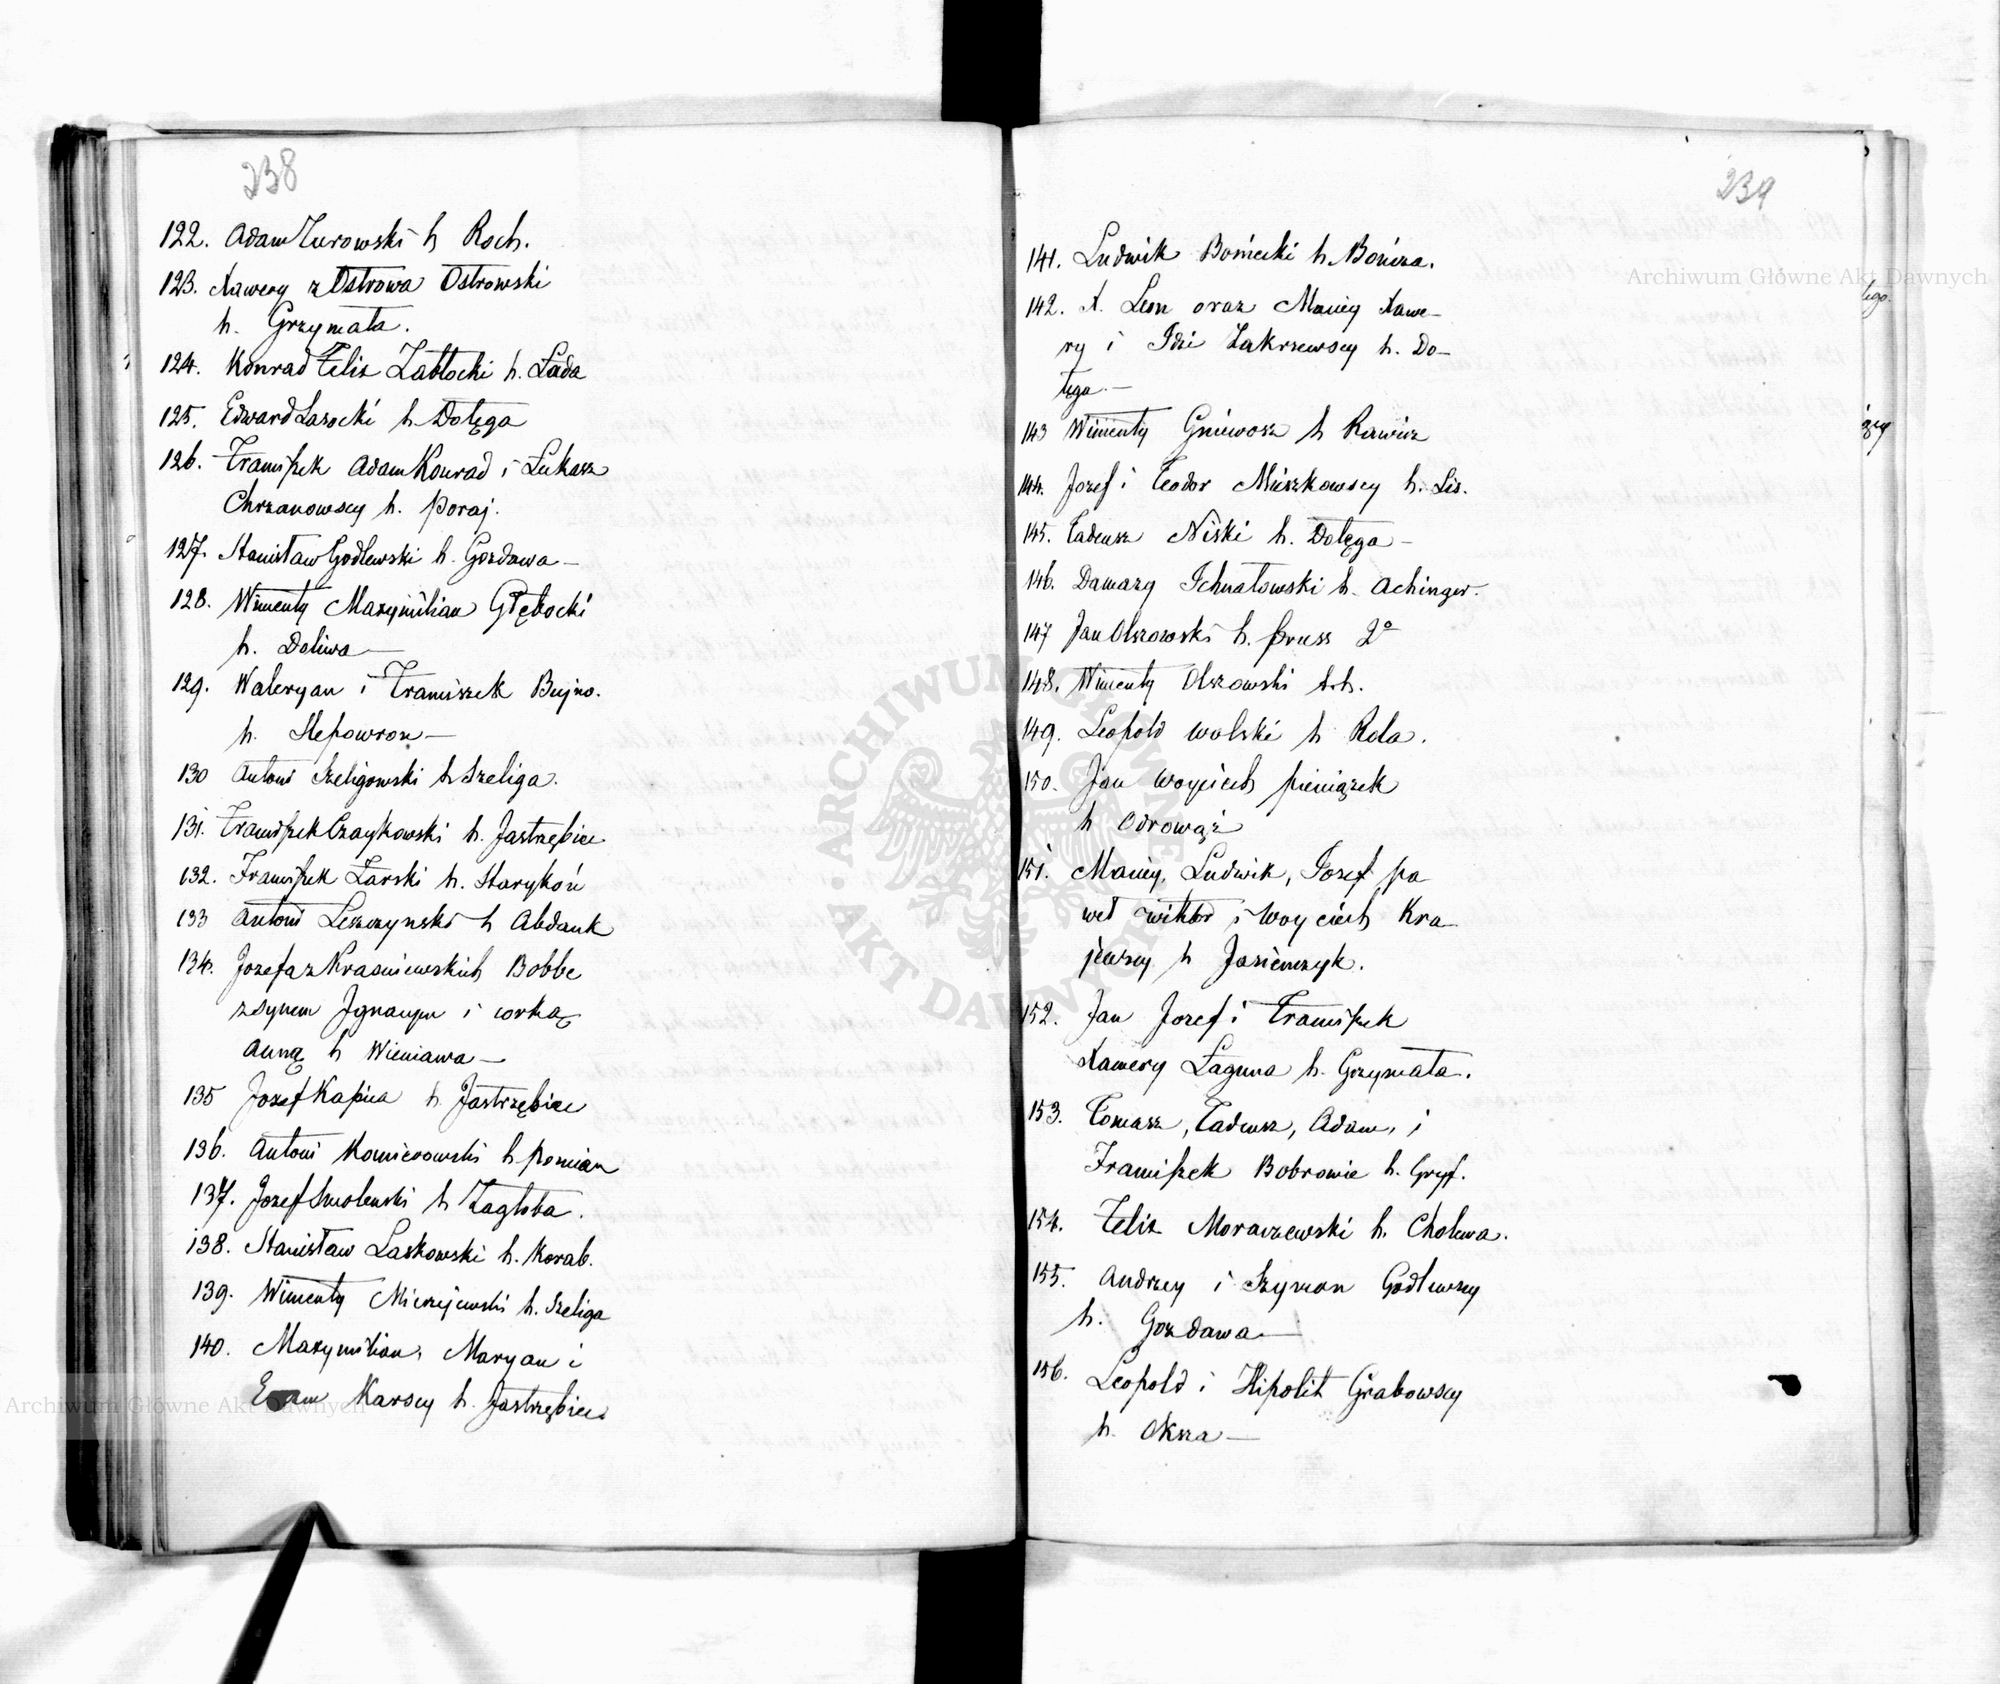 238
122. Adam Zurowski h Roch.
123. Xawery z Ostrowa Ostrowski
h. Grzymała.
124. Konrad Felix Zabłocki h. Łada
125. Edward Lasocki h. Dołęga
126. Franciszek Adam Konrad i Łukasz
Chrzanowscy h. Poraj.
127. Stanisław Godlewski h. Gozdawa —
128. Wincenty Maxymilian Głębocki
h. Doliwa —
129. Waleryan i Franciszek Bujno.
h. Slepowron —
130 Antoni Szeligowski h Szeliga.
131. Franciszek Czaykowski h. Jastrzębiec
132. Franciszek Żarski h. Starykoń
133 Antoni Leszczynski h Abdank
134. Jozefa z Krasniewskich Bobbe
z synem Ignacym i corką
Anną h Wieniawa —
135 Jozef Kapica h Jastrzębiec
136. Antoni Komierowski h Pomian
137. Jozef Smolenski h Zagłoba.
138. Stanisław Laskowski h. Korab.
139. Wincenty Mierzejewski h. Szeliga
140. Maxymilian, Maryan i
Karscy h. Jastrzębiec
239
141. Ludwik Boniecki h. Bończa.
142. X. Leon oraz Maciey Xawe-
ry i Idzi Zakrzewscy h. Do-
łęga —
143 Wincenty Gniewosz h Rawicz
144. Jozef i Teodor Mieszkowscy h. Lis.
145. Tadeusz Niski h. Dołęga —
146. Damazy Ichnatowski h. Achinger.
147 Jan Olszowski h. Pruss 2°
148. Wincenty Olszowski t.h.
149. Leopold Wolski h Rola.
150. Jan Woyciech Pieniążek
h Odrowąż
151. Maciey, Ludwik, Jozef Pa
weł Wiktor i Woyciech Kra
jewscy h Jasieńczyk.
152. Jan Jozef i Franciszek
Xawery Łaguna h. Grzymała.
153. Tomasz, Tadeusz, Adam, i
Franciszek Bobrowie h. Gryf.
154. Felix Moraczewski h. Cholewa.
155. Andrzey i Szymon Godlewscy
h. Gozdawa —
156. Leopold i Hipolit Grabowscy
h. Oksza —
Archiwum Główne Akt Dawnych
Archiwum Główne Akt Dawnych
ARCHIWUM GŁÓWNE AKT DAWNYCH